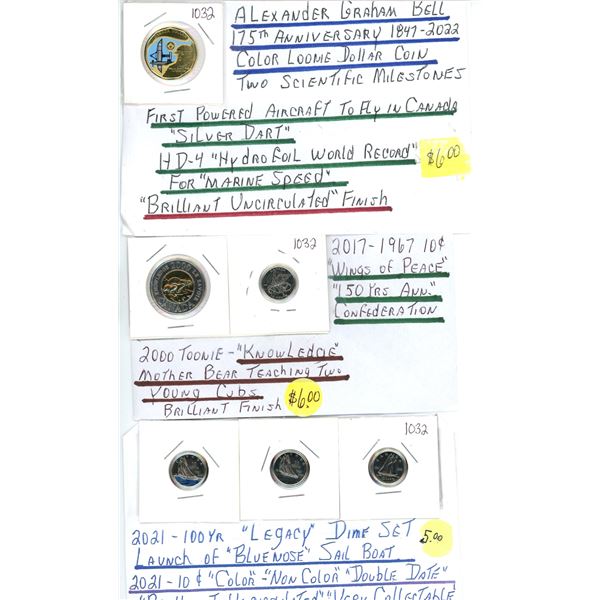 1032
ALEXANDER GRAHAM BELL
175TH ANNIVERSARY 1847-2022
COLOR LOONIE DOLLAR COIN
TWO SCIENTIFIC MILESTONES
FIRST POWERED AIRCRAFT TO FLY IN CANADA
"SILVER DART"
HD-4 "HYDROFOIL WORLD RECORD"
FOR "MARINE SPEED"
$6.00
"BRILLIANT UNCIRCULATED" FINISH
1032
2017-1967 10¢
"WINGS OF PEACE"
"150 YRS ANN."
CONFEDERATION
2000 TOONIE - "KNOWLEDGE"
MOTHER BEAR TEACHING TWO
YOUNG CUBS
BRILLIANT FINISH
$6.00
1032
2021-100 YR "LEGACY" DIME SET
LAUNCH OF "BLUENOSE" SAIL BOAT
5.00
2021-10¢ "COLOR"-"NON COLOR" "DOUBLE DATE"
"VERY COLLECTABLE